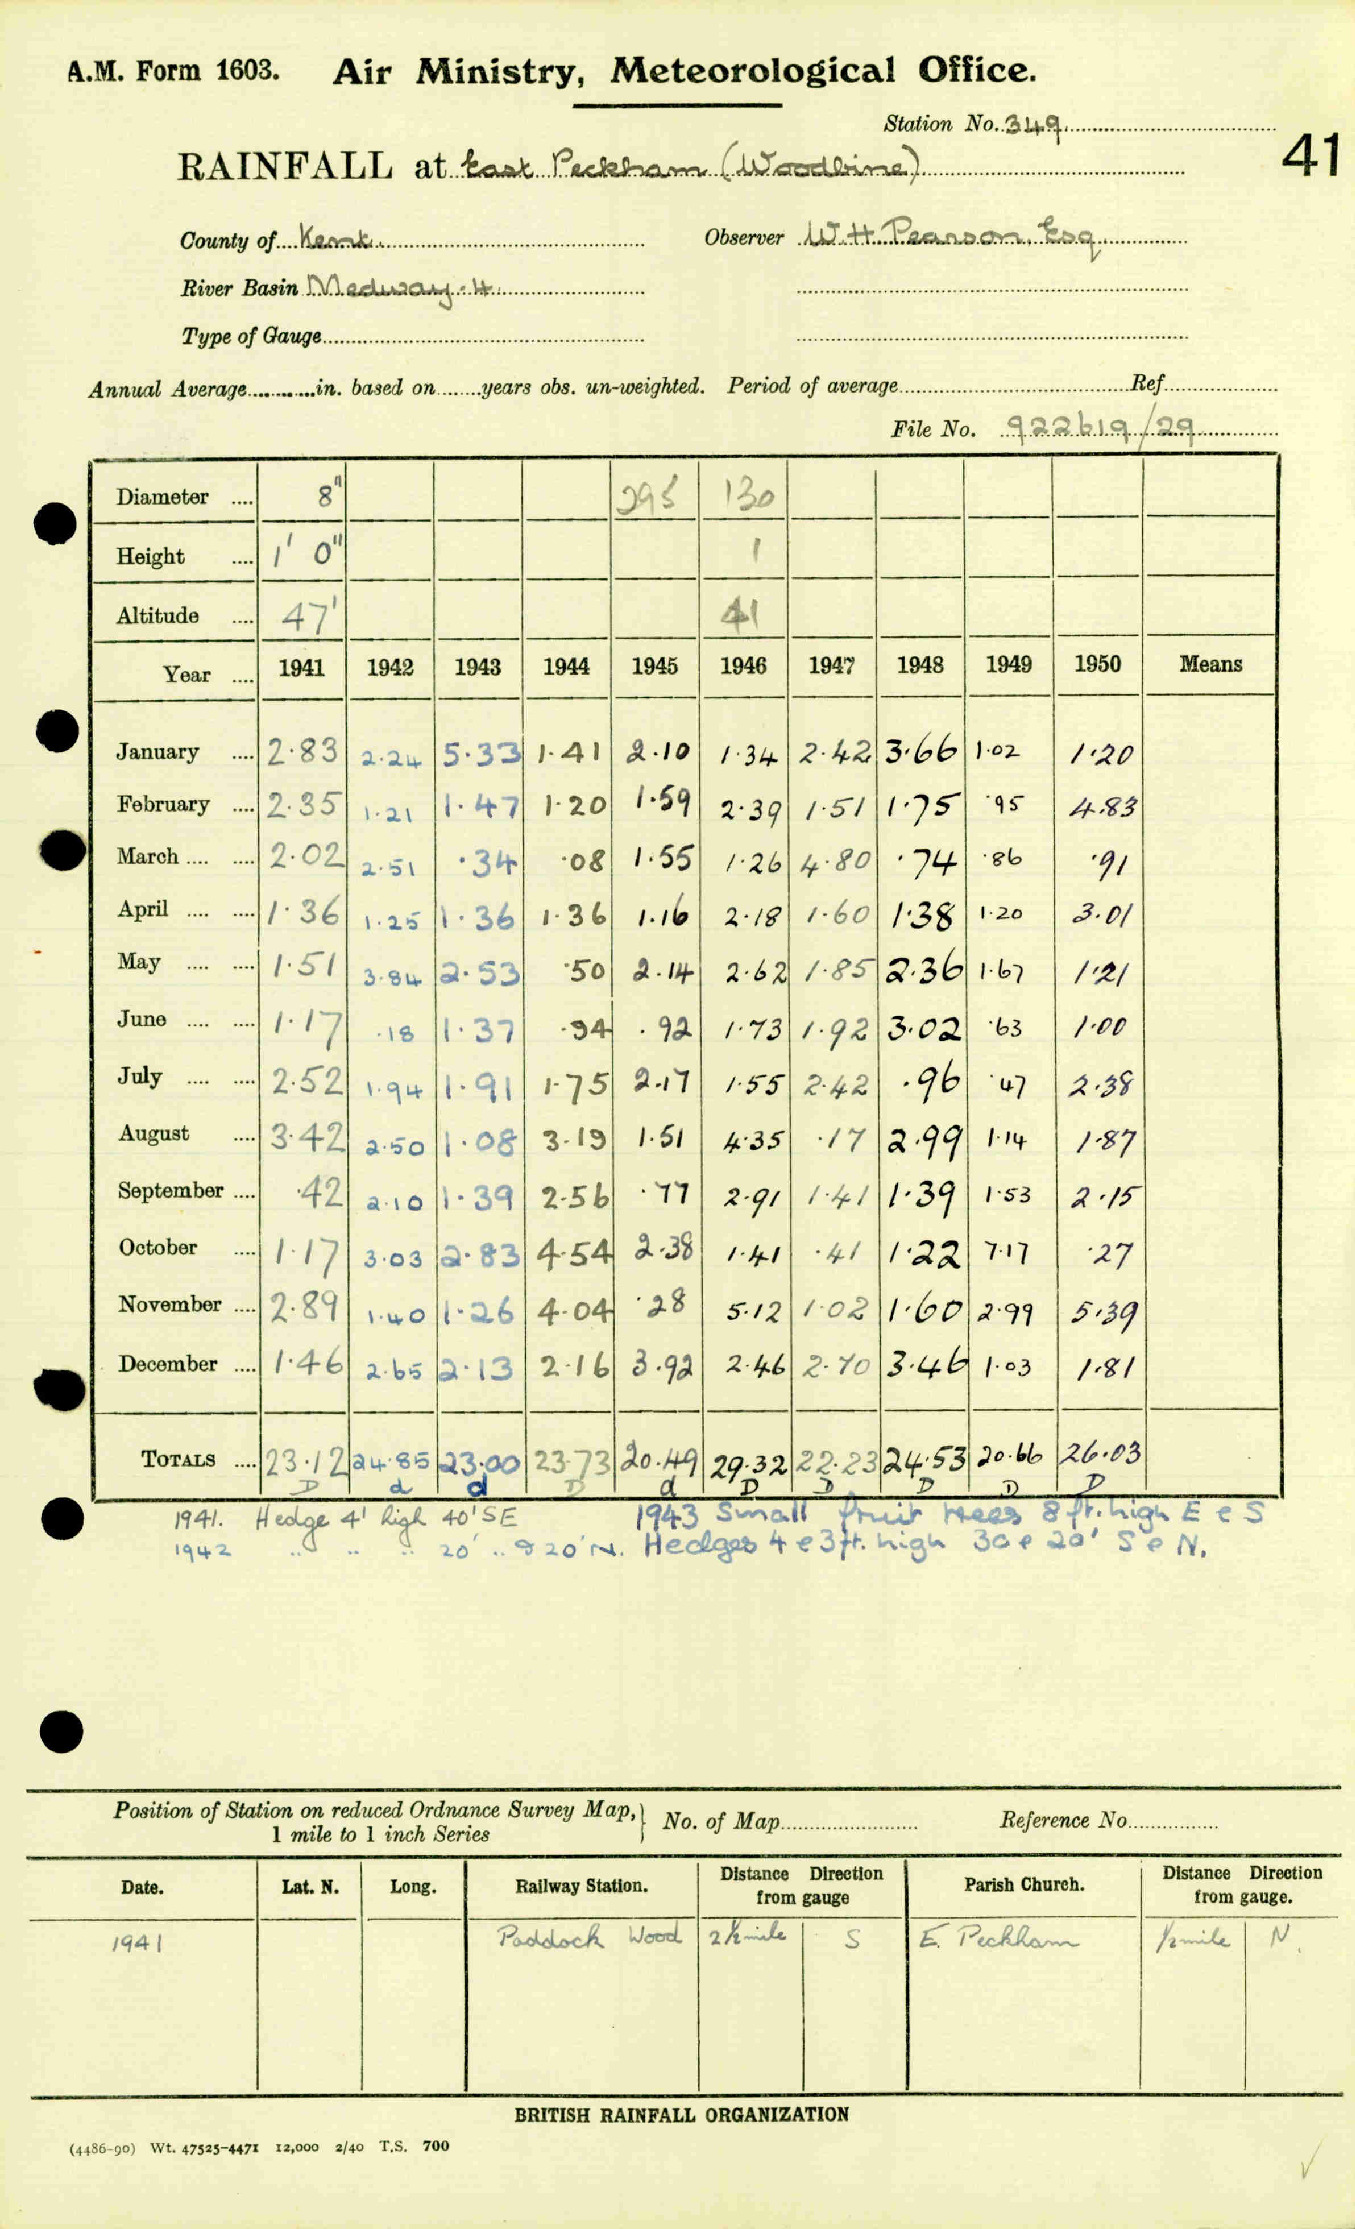 A.M. Form 1603. Air Ministry, Meteorological Office.
Station No. 349
41
RAINFALL at East Peckham (Woodbine)
County of Kent Observer W.H. Pearson, Esq
River Basin Medway.4
Type of Gauge
Annual Average in. based on years obs. un-weighted. Period of average Ref
File No. 922619/29
Diameter 8" 295 130
Height 1' 0" 1
Altitude 47' 41
Year 1941 1942 1943 1944 1945 1946 1947 1948 1949 1950 Means
January 2.83 2.24 5.33 1.41 2.10 1.34 2.42 3.66 1.02 1.20
February 2.35 1.21 1.47 1.20 1.59 2.39 1.51 1.75 .95 4.83
March 2.02 2.51 .34 .08 1.55 1.26 4.80 .74 .86 .91
April 1.36 1.25 1.36 1.36 1.16 2.18 1.60 1.38 1.20 3.01
May 1.51 3.84 2.53 .50 2.14 2.62 1.85 2.36 1.67 1.21
June 1.17 .18 1.37 .94 .92 1.73 1.92 3.02 .63 1.00
July 2.52 1.94 1.91 1.75 2.17 1.55 2.42 .96 .47 2.38
August 3.42 2.50 1.08 3.19 1.51 4.35 .17 2.99 1.14 1.87
September .42 2.10 1.39 2.56 .77 2.91 1.41 1.39 1.53 2.15
October 1.17 3.03 2.83 4.54 2.38 1.41 .41 1.22 7.17 .27
November 2.89 1.40 1.26 4.04 .28 5.12 1.02 1.60 2.99 5.39
December 1.46 2.65 2.13 2.16 3.92 2.46 2.70 3.46 1.03 1.81
TOTALS 23.12 24.85 23.00 23.73 20.49 29.32 22.23 24.53 20.66 26.03
D d d D d D D D D D
1941. Hedge 4' high 40' SE 1943 Small fruit trees 8 ft. high E & S
1942 " " " 20' " & 20' N. Hedges 4 & 3 ft. high 30 & 20' S & N.
Position of Station on reduced Ordnance Survey Map, 1 mile to 1 inch Series No. of Map Reference No.
Date. Lat. N. Long. Railway Station. Distance Direction from gauge Parish Church. Distance Direction from gauge.
1941 Paddock Wood 2½ mile S E. Peckham ½ mile N.
BRITISH RAINFALL ORGANIZATION
(4486-90) Wt. 47525-4471 12,000 2/40 T.S. 700